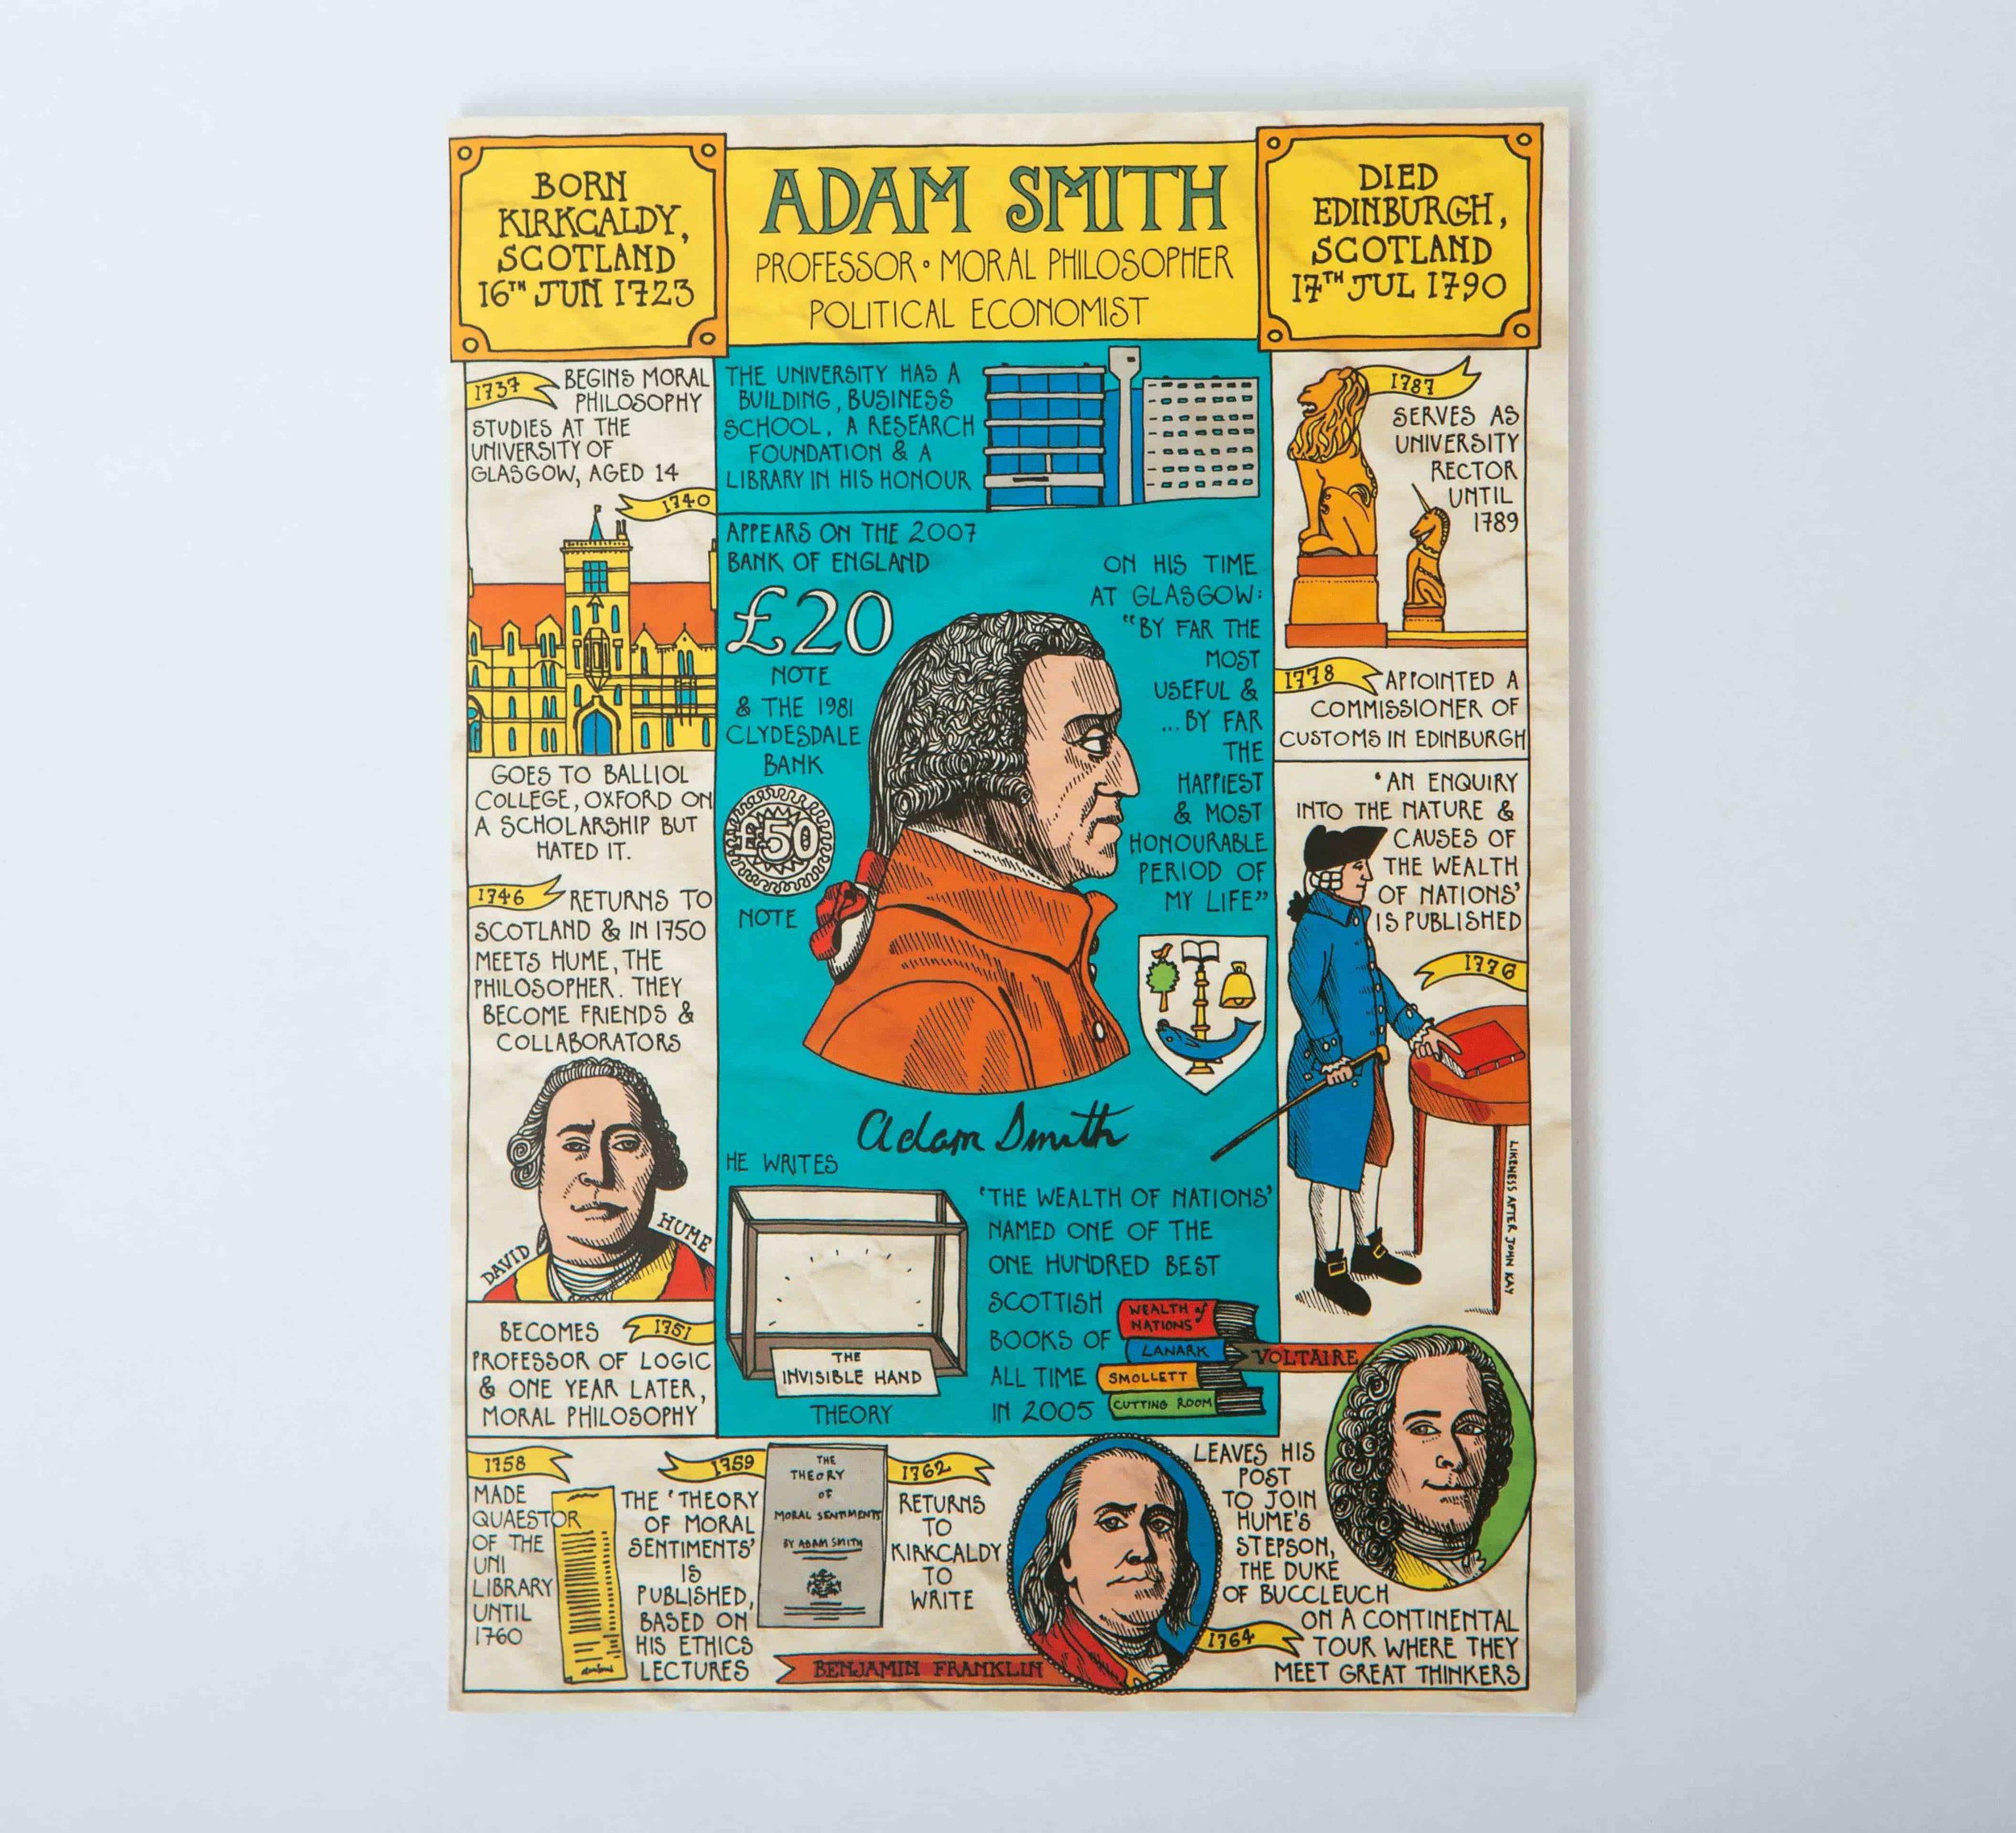 BORN
KIRKCALDY,
SCOTLAND
16TH JUN 1723
ADAM SMITH
PROFESSOR • MORAL PHILOSOPHER
POLITICAL ECONOMIST
DIED
EDINBURGH,
SCOTLAND
17TH JUL 1790
1737
BEGINS MORAL
PHILOSOPHY
STUDIES AT THE
UNIVERSITY OF
GLASGOW, AGED 14
1740
GOES TO BALLIOL
COLLEGE, OXFORD ON
A SCHOLARSHIP BUT
HATED IT.
1746 RETURNS TO
SCOTLAND & IN 1750
MEETS HUME, THE
PHILOSOPHER. THEY
BECOME FRIENDS &
COLLABORATORS
DAVID HUME
BECOMES 1751
PROFESSOR OF LOGIC
& ONE YEAR LATER,
MORAL PHILOSOPHY'
THE UNIVERSITY HAS A
BUILDING, BUSINESS
SCHOOL, A RESEARCH
FOUNDATION & A
LIBRARY IN HIS HONOUR
APPEARS ON THE 2007
BANK OF ENGLAND
£20
NOTE
& THE 1981
CLYDESDALE
BANK
£50
NOTE
ON HIS TIME
AT GLASGOW:
"BY FAR THE
MOST
USEFUL &
...BY FAR
THE
HAPPIEST
& MOST
HONOURABLE
PERIOD OF
MY LIFE"
Adam Smith
HE WRITES
THE
INVISIBLE HAND
THEORY
'THE WEALTH OF NATIONS'
NAMED ONE OF THE
ONE HUNDRED BEST
SCOTTISH
BOOKS OF
ALL TIME
IN 2005
WEALTH of
NATIONS
LANARK
SMOLLETT
CUTTING ROOM
1787
SERVES AS
UNIVERSITY
RECTOR
UNTIL
1789
1778 APPOINTED A
COMMISSIONER OF
CUSTOMS IN EDINBURGH
'AN ENQUIRY
INTO THE NATURE &
CAUSES OF
THE WEALTH
OF NATIONS'
IS PUBLISHED
1776
LIKENESS AFTER JOHN KAY
VOLTAIRE
1758
MADE
QUAESTOR
OF THE
UNI
LIBRARY
UNTIL
1760
1759
THE 'THEORY
OF MORAL
SENTIMENTS'
IS
PUBLISHED,
BASED ON
HIS ETHICS
LECTURES
THE
THEORY
OF
MORAL SENTIMENTS
BY ADAM SMITH
1762
RETURNS
TO
KIRKCALDY
TO
WRITE
BENJAMIN FRANKLIN
LEAVES HIS
POST
TO JOIN
HUME'S
STEPSON,
THE DUKE
OF BUCCLEUCH
ON A CONTINENTAL
1764 TOUR WHERE THEY
MEET GREAT THINKERS